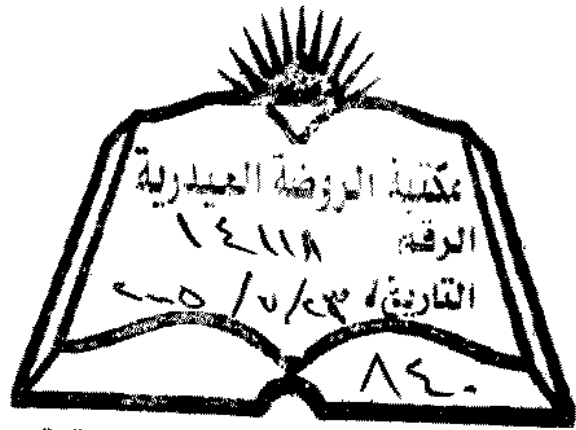 مكتبة الروضة الحيدرية
الرقم ١٤١١٨
التاريخ ٢٣ / ٧ / ٢٠٠٥
٨٤٠